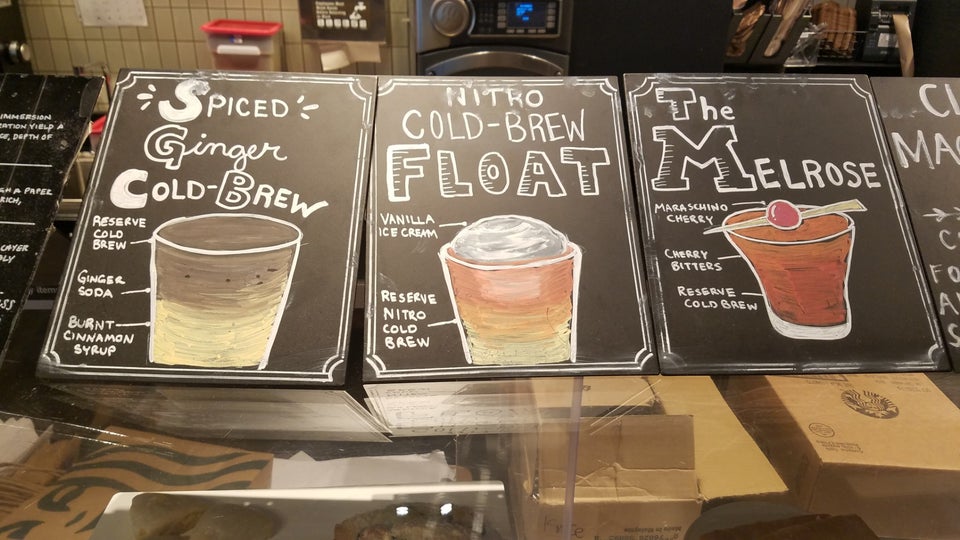 IMMERSION
DEPTH OF
A PAPER
RICH,
SPICED
GINGER
COLD-BREW
RESERVE
COLD
BREW
GINGER
SODA
BURNT
CINNAMON
SYRUP
NITRO
COLD-BREW
FLOAT
VANILLA
ICE CREAM
RESERVE
NITRO
COLD
BREW
THE
MELROSE
MARASCHINO
CHERRY
CHERRY
BITTERS
RESERVE
COLD BREW
Made in Malaysia